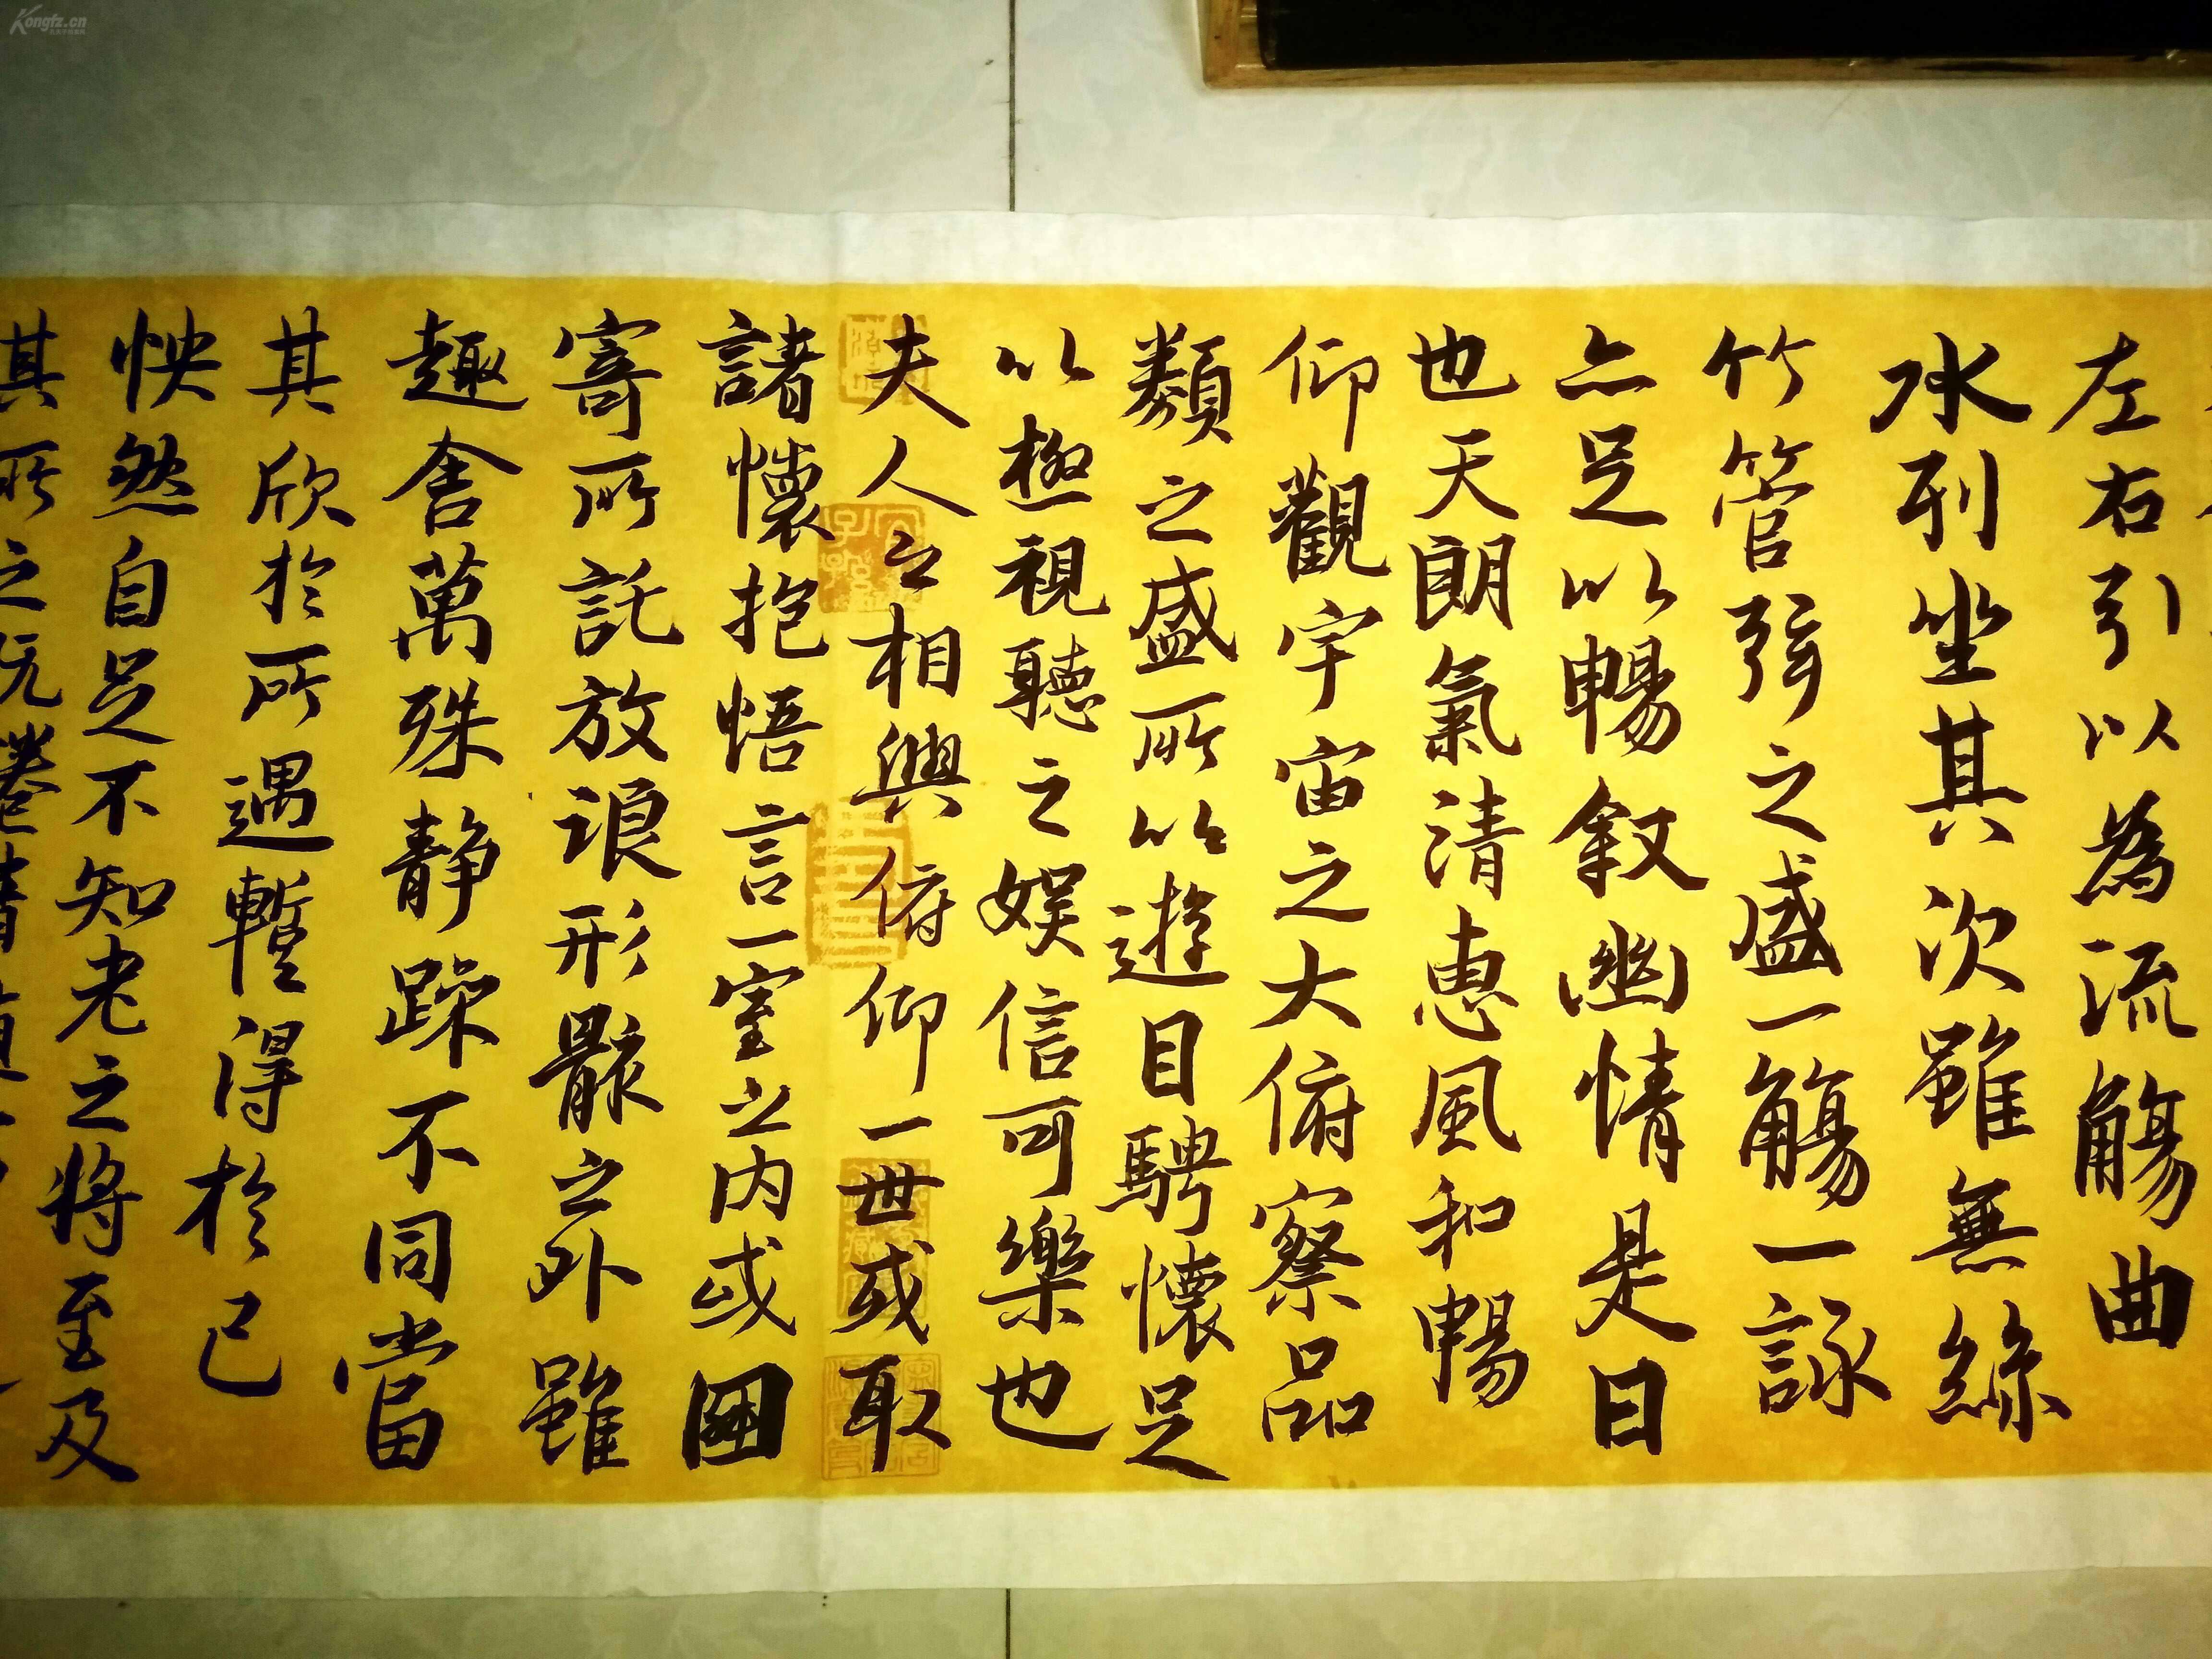 左右引以為流觴曲
水列坐其次雖無絲
竹管弦之盛一觴一詠
亦足以暢叙幽情是日
也天朗氣清惠風和暢
仰觀宇宙之大俯察品
類之盛所以遊目騁懷足
以極視聽之娛信可樂也
夫人之相與俯仰一世或取
諸懷抱悟言一室之内或因
寄所託放浪形骸之外雖
趣舍萬殊静躁不同當
其欣於所遇暫得於己
怏然自足不知老之將至及
其所之既惓情隨
Kongfz.cn